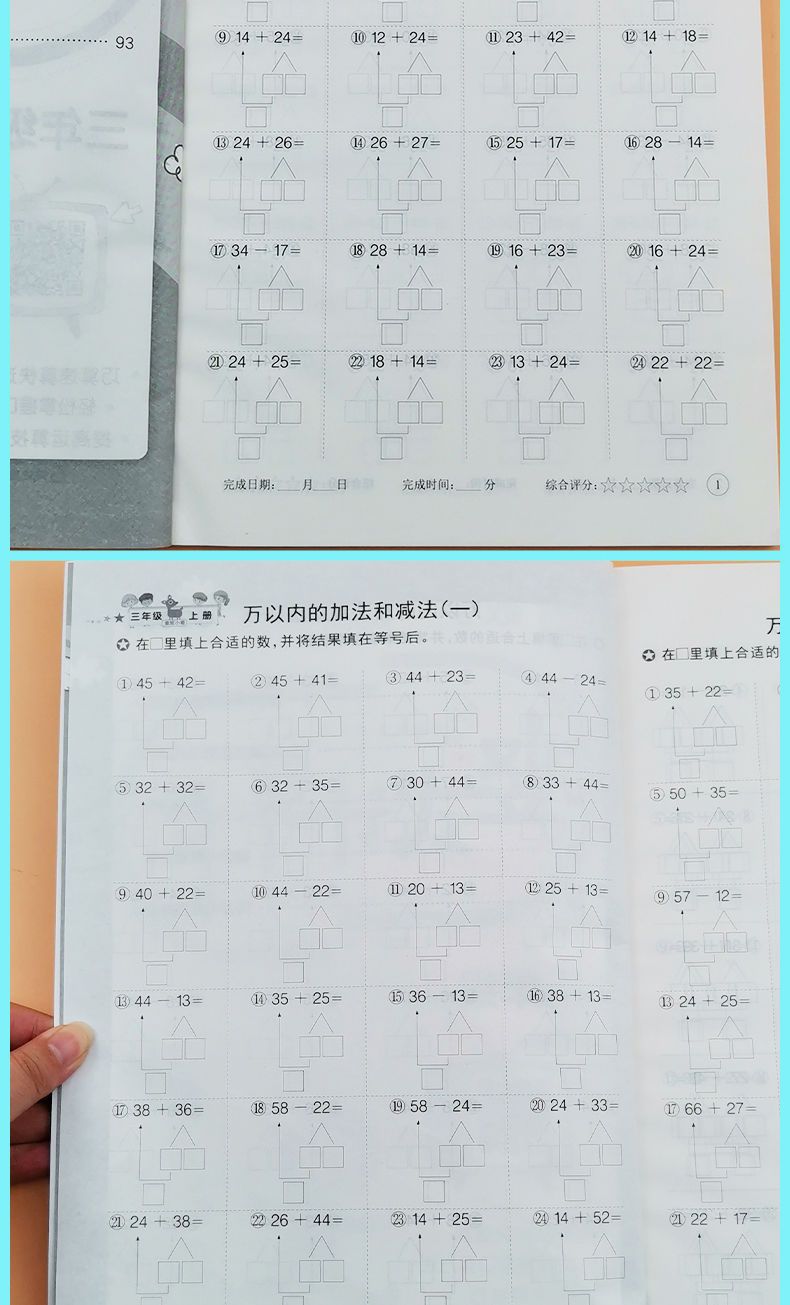 93
⑨ 14 + 24= ⑩ 12 + 24= ⑪ 23 + 42= ⑫ 14 + 18=
⑬ 24 + 26= ⑭ 26 + 27= ⑮ 25 + 17= ⑯ 28 － 14=
⑰ 34 － 17= ⑱ 28 + 14= ⑲ 16 + 23= ⑳ 16 + 24=
㉑ 24 + 25= ㉒ 18 + 14= ㉓ 13 + 24= ㉔ 22 + 22=
完成日期:___月___日 完成时间:___分 综合评分:☆☆☆☆☆ 1
三年级 上册
万以内的加法和减法(一)
✪ 在□里填上合适的数,并将结果填在等号后。
① 45 + 42= ② 45 + 41= ③ 44 + 23= ④ 44 － 24=
⑤ 32 + 32= ⑥ 32 + 35= ⑦ 30 + 44= ⑧ 33 + 44=
⑨ 40 + 22= ⑩ 44 － 22= ⑪ 20 + 13= ⑫ 25 + 13=
⑬ 44 － 13= ⑭ 35 + 25= ⑮ 36 － 13= ⑯ 38 + 13=
⑰ 38 + 36= ⑱ 58 － 22= ⑲ 58 － 24= ⑳ 24 + 33=
㉑ 24 + 38= ㉒ 26 + 44= ㉓ 14 + 25= ㉔ 14 + 52=
万
✪ 在□里填上合适的
① 35 + 22=
⑤ 50 + 35=
⑨ 57 － 12=
⑬ 24 + 25=
⑰ 66 + 27=
㉑ 22 + 17=